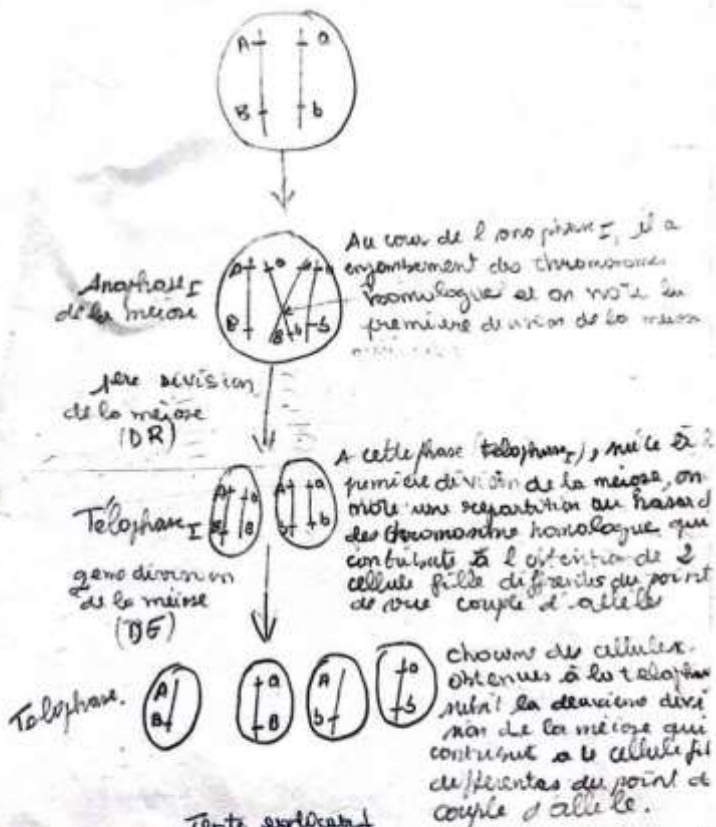 A a
B b
Anaphase I
de la meiose
A a a
B B b b
Au cour de l'anaphase I, il a
enjambement des chromosomes
homologue et on note la
première division de la meiose
1ere division
de la meiose
(DR)
Télophase I
A a A a
B B b b
A cette phase (telophase I), suite à
première division de la meiose, on
note une repartition au hasard
des chromosome homologue qui
contribute à l'obtention de 2
cellule fille differentes du point
de vue couple d'allele
division
de la meiose
(DE)
Telophase.
A a A a
B B b b
chacune des cellules
obtenues à la telophase
subit la deuxieme divi
sion de la meiose qui
contribut a 4 cellule fil
differentes du point d
couple d'allele.
Texte explicatif